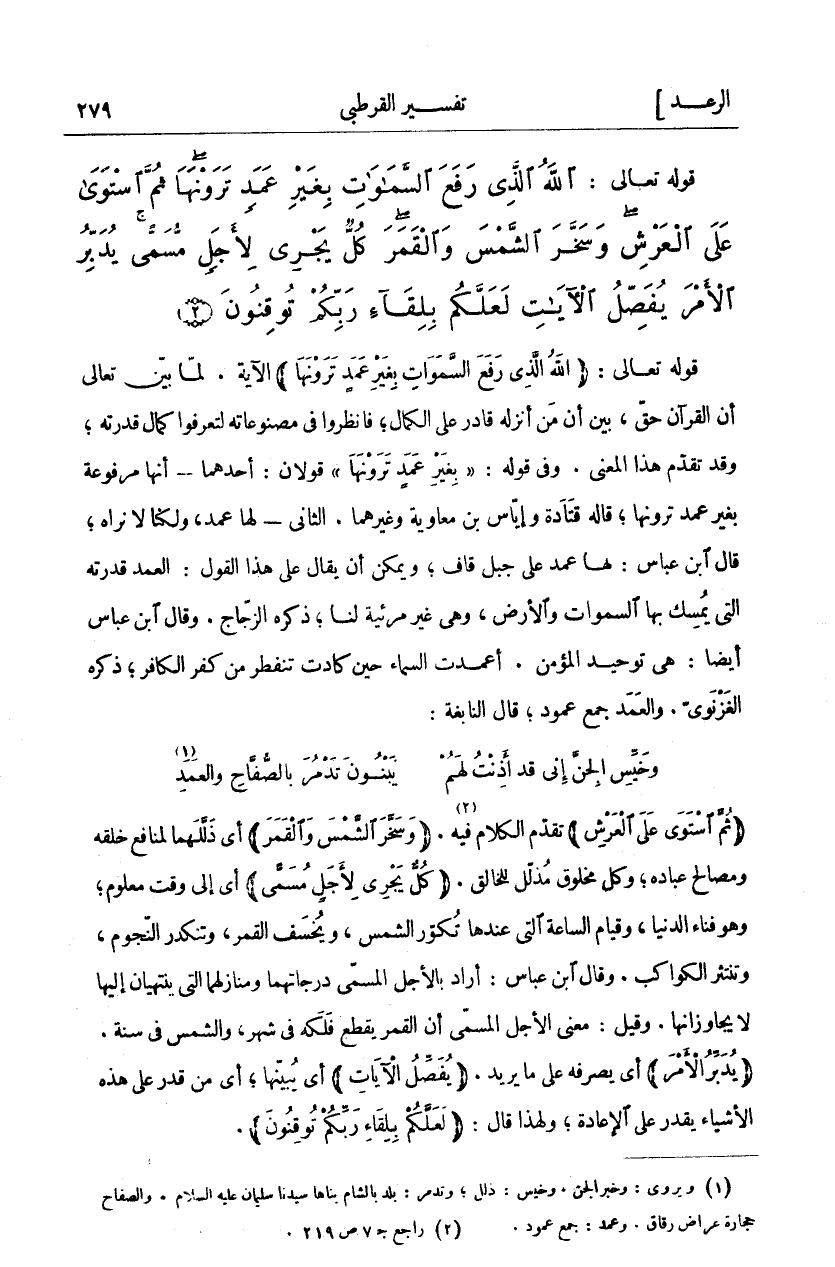 الرعـــد ]    تفســـير القرطبى    ٢٧٩
قوله تعـالى : ٱللَّهُ ٱلَّذِى رَفَعَ ٱلسَّمَـٰوَٰتِ بِغَيْرِ عَمَدٍ تَرَوْنَهَا ۖ ثُمَّ ٱسْتَوَىٰ
عَلَى ٱلْعَرْشِ ۖ وَسَخَّرَ ٱلشَّمْسَ وَٱلْقَمَرَ ۖ كُلٌّ يَجْرِى لِأَجَلٍ مُّسَمًّى ۚ يُدَبِّرُ
ٱلْأَمْرَ يُفَصِّلُ ٱلْآيَـٰتِ لَعَلَّكُم بِلِقَآءِ رَبِّكُمْ تُوقِنُونَ ﴿٢﴾
قوله تعـالى : ﴿ اللهُ الَّذِى رَفَعَ السَّمَوَاتِ بِغَيْرِ عَمَدٍ تَرَوْنَهَا ﴾ الآية . لمـا بيّن تعالى
أن القرآن حقّ ، بين أن مَن أنزله قادر على الكمال؛ فانظروا فى مصنوعاته لتعرفوا كمال قدرته ؛
وقد تقدّم هذا المعنى . وفى قوله : « بِغَيْرِ عَمَدٍ تَرَوْنَهَا » قولان : أحدهما — أنها مرفوعة
بغير عمد ترونها ؛ قاله قَتَادة و إيَّاس بن معاوية وغيرهما . الثانى — لها عمد، ولكنا لا نراه ؛
قال ٱبن عباس : لهـا عمد على جبل قاف ؛ و يمكن أن يقال على هذا القول : العمد قدرته
التى يُمسِك بها ٱلسموات وٱلأرض ، وهى غير مرئية لنـا ؛ ذكره الزّجاج . وقال ٱبن عباس
أيضا : هى توحيـد المؤمن . أعمـدت السماء حين كادت تنفطر من كفر الكافر ؛ ذكره
الغَزْنَوِىّ . والعَمَد جمع عمود ؛ قال النابغة :
وخَيِّسِ الجِنَّ إنى قد أَذِنْتُ لهَمُ    يَبْنُــونَ تَدْمُرَ بالصُّفَّاحِ والعَمَدِ (١)
﴿ ثُمَّ ٱسْتَوَى عَلَى ٱلْعَرْشِ ﴾ تقدّم الكلام فيه (٢) . ﴿ وَسَخَّرَ ٱلشَّمْسَ وَٱلْقَمَرَ ﴾ أى ذَلَّلَهما لمنافع خلقه
ومصالح عباده؛ وكل مخلوق مُذلّل للخالق . ﴿ كُلٌّ يَجْرِى لِأَجَلٍ مُسَمًّى ﴾ أى إلى وقت معلوم؛
وهو فناء الدنيا ، وقيام الساعة ٱلتى عندها تُكوّر الشمس ، ويُخسَف القمر، وتنكدر النّجوم ،
وتنتثر الكواكب . وقال ٱبن عباس : أراد بالأجل المسمّى درجاتهما ومنازلهما التى ينتهيان إليها
لا يجاوزانها . وقيل : معنى الأجل المسمّى أن القمر يقطع فَلَكه فى شهر، والشمس فى سنة .
﴿ يُدَبِّرُ ٱلْأَمْرَ ﴾ أى يصرفه على ما يريد . ﴿ يُفَصِّلُ ٱلْآيَاتِ ﴾ أى يُبيّنها ؛ أى من قدر على هذه
الأشياء يقدر على ٱلإعادة ؛ ولهذا قال : ﴿ لَعَلَّكُمْ بِلِقَاءِ رَبِّكُمْ تُوقِنُونَ ﴾ .
(١) و يروى : وخبر الجن . وخيس : ذلل ؛ وتدمر : بلد بالشام بناها سيدنا سليمان عليه السلام . والصفاح
حجارة عراض رقاق . وعمد : جمع عمود .    (٢) راجع جـ ٧ ص ٢١٩ .